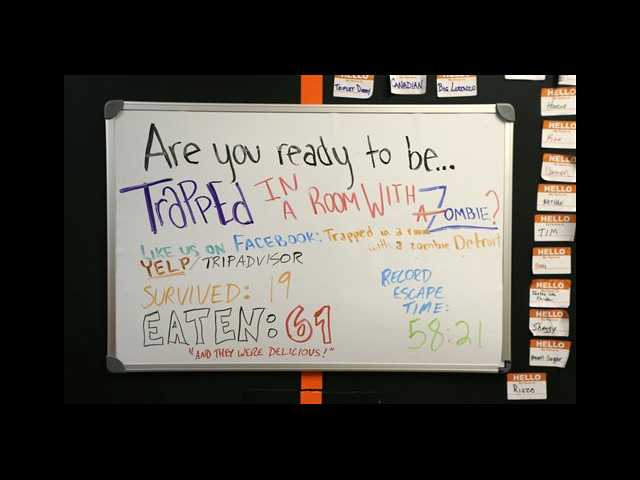 HELLO
TRIPLET DADDY
CANADIAN
BIG LORENZO
HELLO
HELLO
HELLO
HELLO
HELLO
TIM
HELLO
HELLO
HELLO
Shaggy
HELLO
HELLO
Rizzo
Are you ready to be...
TRAPPED IN A ROOM WITH A ZOMBIE?
LIKE US ON FACEBOOK: Trapped in a room
with a zombie Detroit
YELP/TRIPADVISOR
SURVIVED: 19
EATEN: 61
"AND THEY WERE DELICIOUS!"
RECORD
ESCAPE
TIME:
58:21